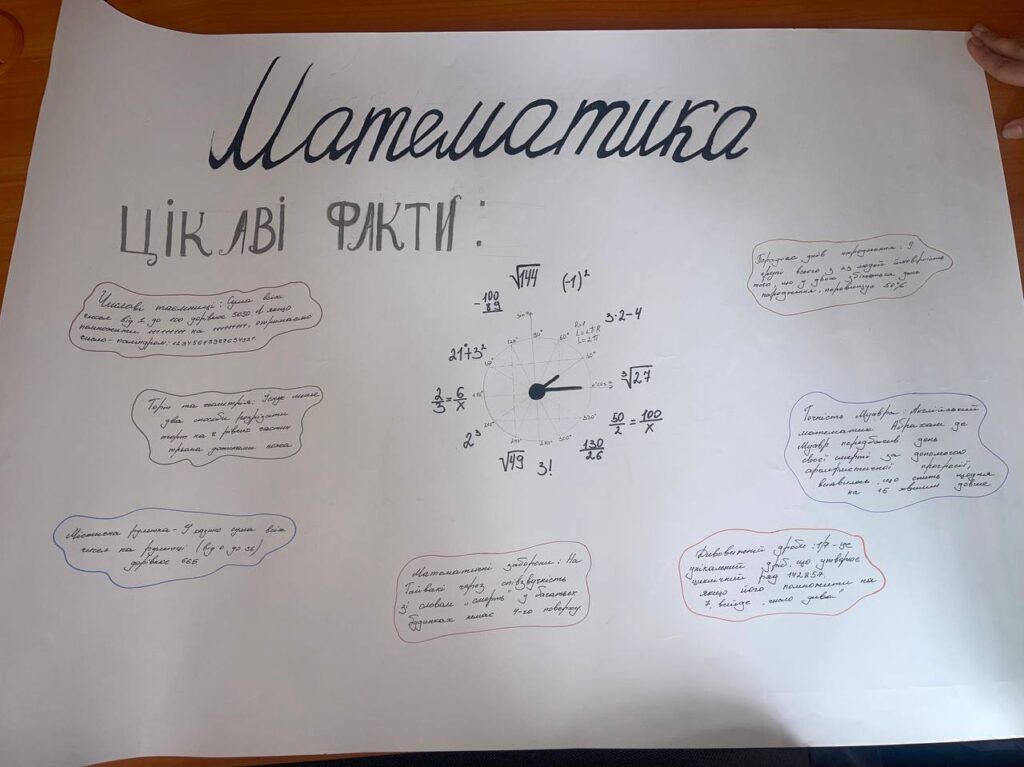 Математика
ЦІКАВІ ФАКТИ:
Числові таємниці: Сума всіх
чисел від 1 до 100 дорівнює 5050. А якщо
помножити 111111111 на 111111111, отримаємо
число-паліндром: 12345678987654321.
Торт та геометрія: Існує лише
два способи розрізати
торт на 8 рівних частин
трьома дотиками ножа
Містична рулетка - У казино сума всіх
чисел на рулетці (від 0 до 36)
дорівнює 666
√144
(-1)²
- 100/89
3·2-4
21⁰+3²
³√27
2/3 = 6/x
50/2 = 100/x
2³
130/26
√49
3!
90°
60°
120°
30°
L=2πR
L=2π
Математичні заборони: На
Тайвані через співзвучність
зі словом "смерть" у багатьох
будинках немає 4-го поверху.
Парадокс днів народження: У
групі всього з 23 людей ймовірність
того, що у двох збігаються дні
народження, перевищує 50%
Точність Муавра: Англійський
математик Абрахам де
Муавр передбачив день
своєї смерті за допомогою
арифметичної прогресії,
виявивши, що спить щодня
на 15 хвилин довше
дроби: 1/7 - це
унікальний дріб, що утворює
циклічний ряд 142857.
якщо його помножити на
7, вийде "число дива"